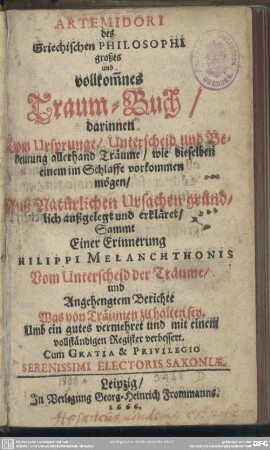 ARTEMIDORI
des
Griechischen PHILOSOPHI
großes
und
vollkom̄nes
Traum-Buch/
darinnen
Vom Ursprunge/ Unterscheid und Be-
deutung allerhand Träume/ wie dieselben
einem im Schlaffe vorkommen
mögen/
Auß Natürlichen Ursachen gründ-
lich außgelegt und erkläret/
Samt
Einer Erinnerung
PHILIPPI MELANCHTHONIS
Vom Unterscheid der Träume/
und
Angehengtem Berichte
Was von Träumen zu halten sey.
Umb ein gutes vermehret und mit einem
vollständigen Register verbessert.
Cum GRATIA & PRIVILEGIO
SERENISSIMI ELECTORIS SAXONIÆ.
Leipzig/
In Verlegung Georg-Heinrich Frommanns.